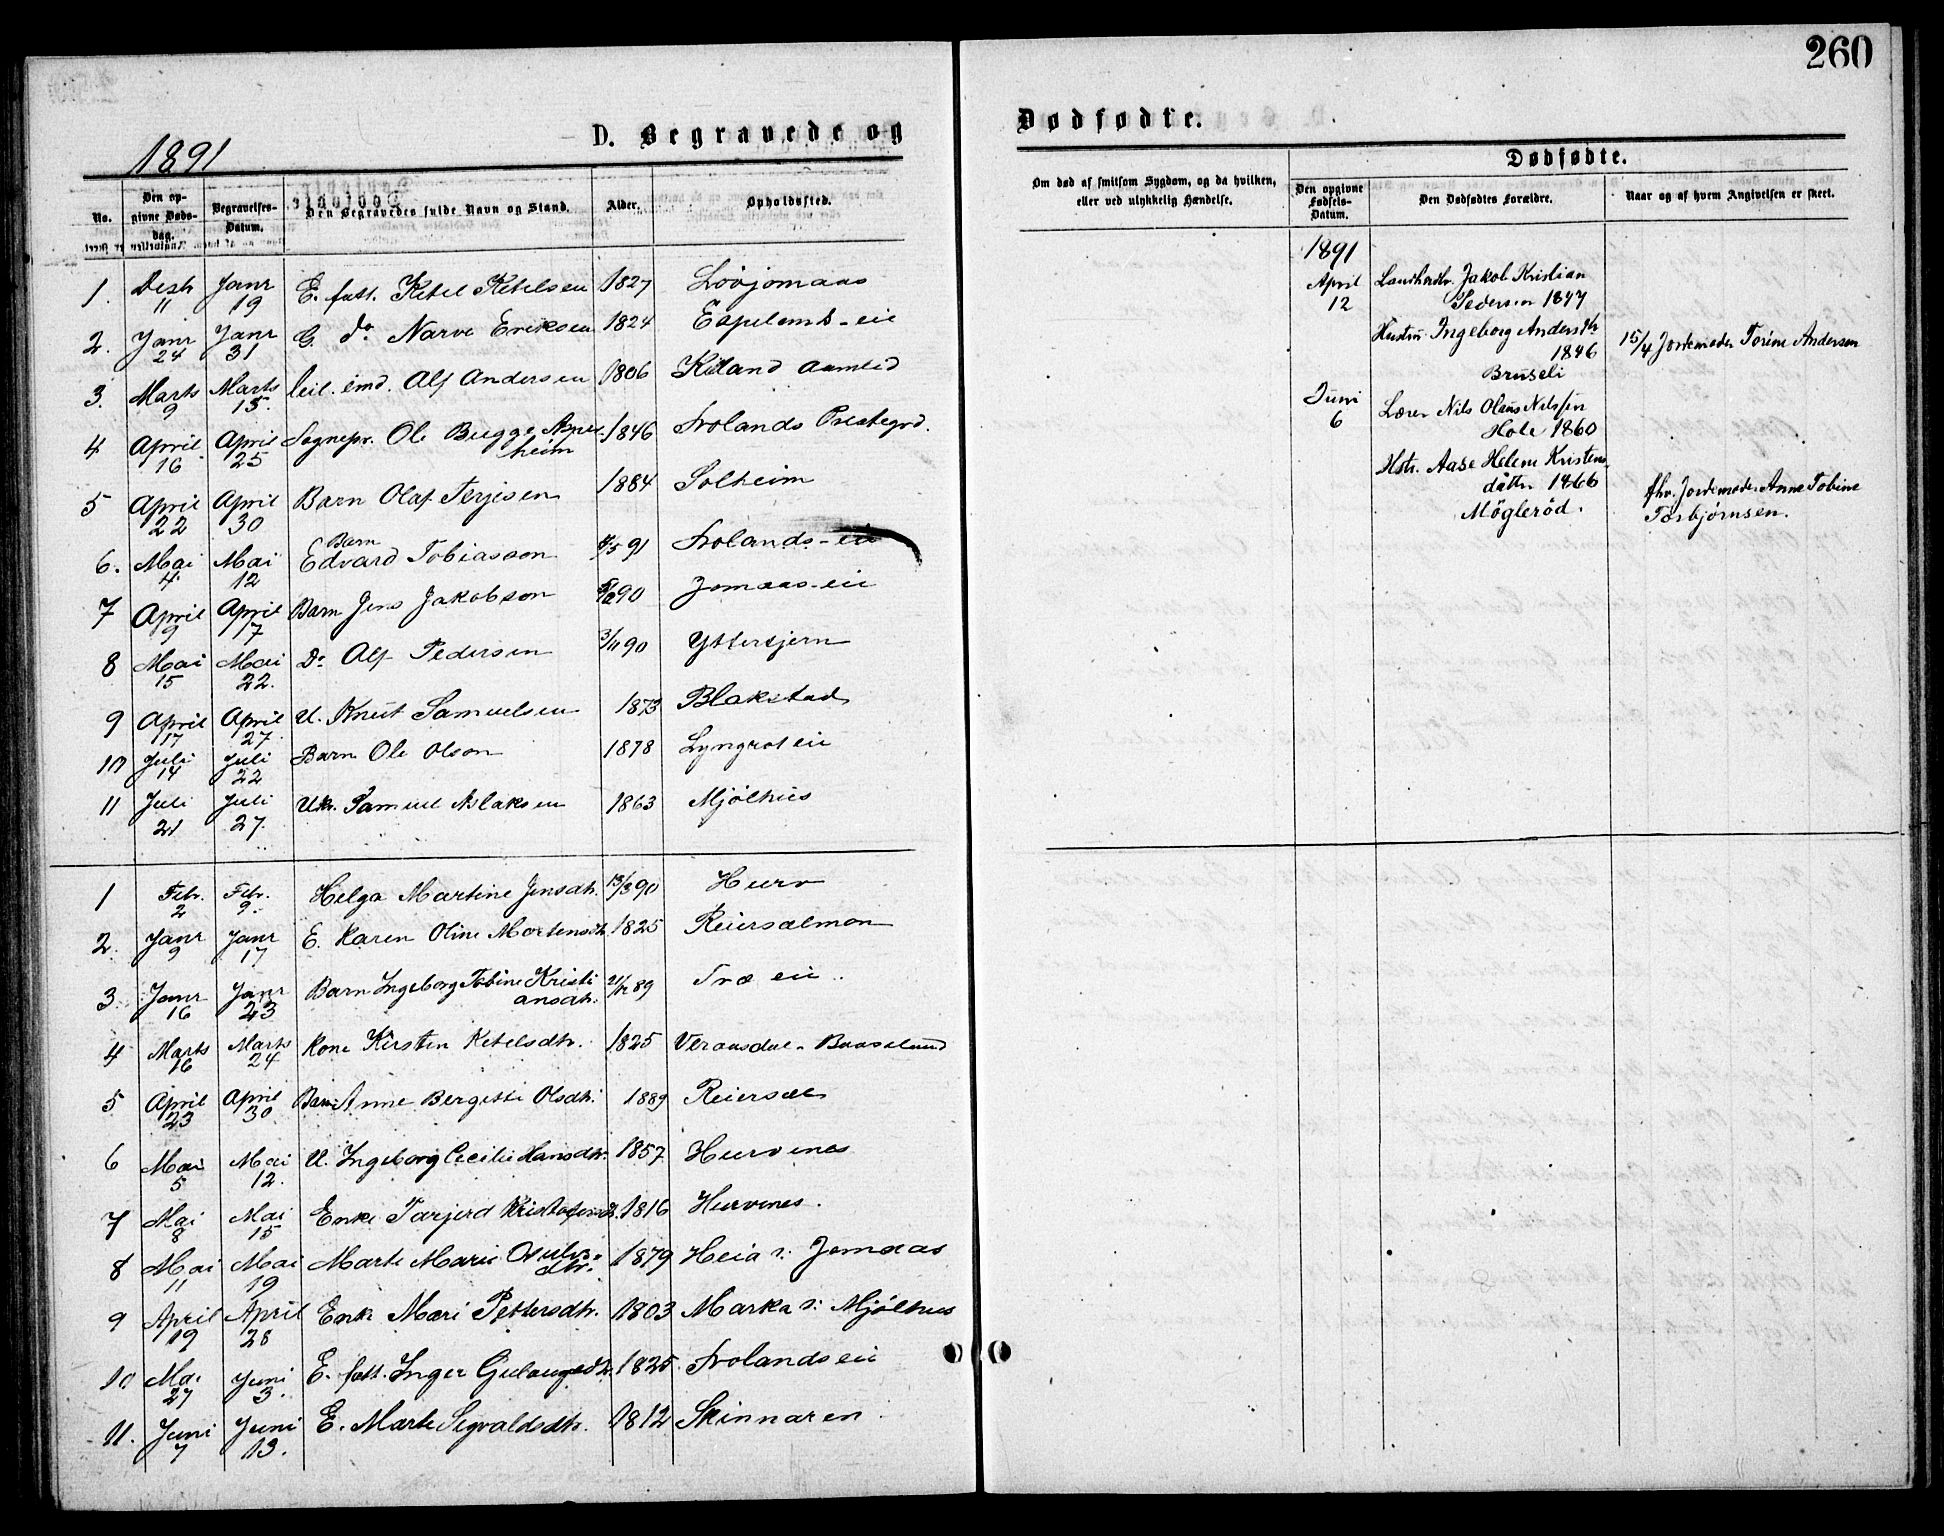 260
1891
D. Begravede og
Dødfødte.
No.
Den opgivne Døds-dag.
Begravelses-Datum.
Den Begravedes fulde Navn og Stand.
Alder.
Opholdssted.
Om død af smitsom Sygdom, og da hvilken, eller ved ulykkelig Hændelse.
Dødfødte.
Den opgivne Fødsels-Datum.
Den Dødfødtes Forældre.
Naar og af hvem Angivelsen er skeet.
1. Desb 11 Janr 19 E. fatt. Ketel Ketelsen 1827
2. Janr 24 Janr 31 G. do Narve Eriksen 1824 Espelands-eie
3. Marts 9 Marts 15. Alf Andersen 1806 Kiland Aamlid
4 April 16 April 25 Sognepr. Ole Bugge Asper-
heim 1846 Frolands Prestegrd.
5 April 22 April 30 Barn Olaf Terjesen 1884 Solheim
6. Mai 4. Mai 12 Barn Edvard Tobiasson 91 Frolands-eie
7 April 9 April 17 Barn Jens Jakobson 90 Jomaas-eie
8 Mai 15 Mai 22. Do Alf Pedersen 3/11 90 Yttersjern
9 April 17 April 27. U. Knut Samuelsen 1873 Blakstad
10 Juli 14 Juli 22 Barn Ole Olson 1878 Lyngrot eie
11 Juli 21 Juli 27. Uk. Samuel Aslaksen 1863 Mjølhus
1 Febr. 2 Febr. 9. Helga Martine Jensdtr. 13/3 90 Hurv
2. Janr 9 Janr 17 E. Karen Oline Mortensdtr. 1825 Reiersølmon
3. Janr 16 Janr 23 Barn Ingeborg Tobine Kristi
ansdtr. 89 Træ eie
4 Marts 16 Marts 24 Kone Kirsten Ketelsdtr. 1825
5 April 23 April 30 Barn Anne Bergitte Olsdtr. 1889 Reiersøl
6 Mai 5 Mai 12. U. Ingeborg Cecilie Hansdtr. 1857 Hurvenes
7 Mai 8 Mai 15 Enke Tarjerd 1816 Hurvenes.
8 Mai 11 Mai 19 Marte Marie Osulvs-
dtr. 1879 Heia v: Jomaas
9 April 19 April 28 Enke Mari Pettersdtr. 1803 Marka v: Mjølhus
10 Mai 27 Juni 3. E. fatt. Inger 1825. Frolands eie
11. Juni 7 Juni 13. E. Marte Segvaldsdtr. 1812 Skinnaren
1891
April 12 Jakob Kristian
Pedersen 1847
Hustru Ingeborg Andersdtr
1846
Bruseli
15/4 Jordemoder Torine Andersen
Juni 6 Lærer Nils Olaus Nilssen
Hole 1860
Hstr. Aase Helene Kristens-
datter 1866
Møglerød.
fhv. Jordemoder Anne Tobine
Torbjørnsen.